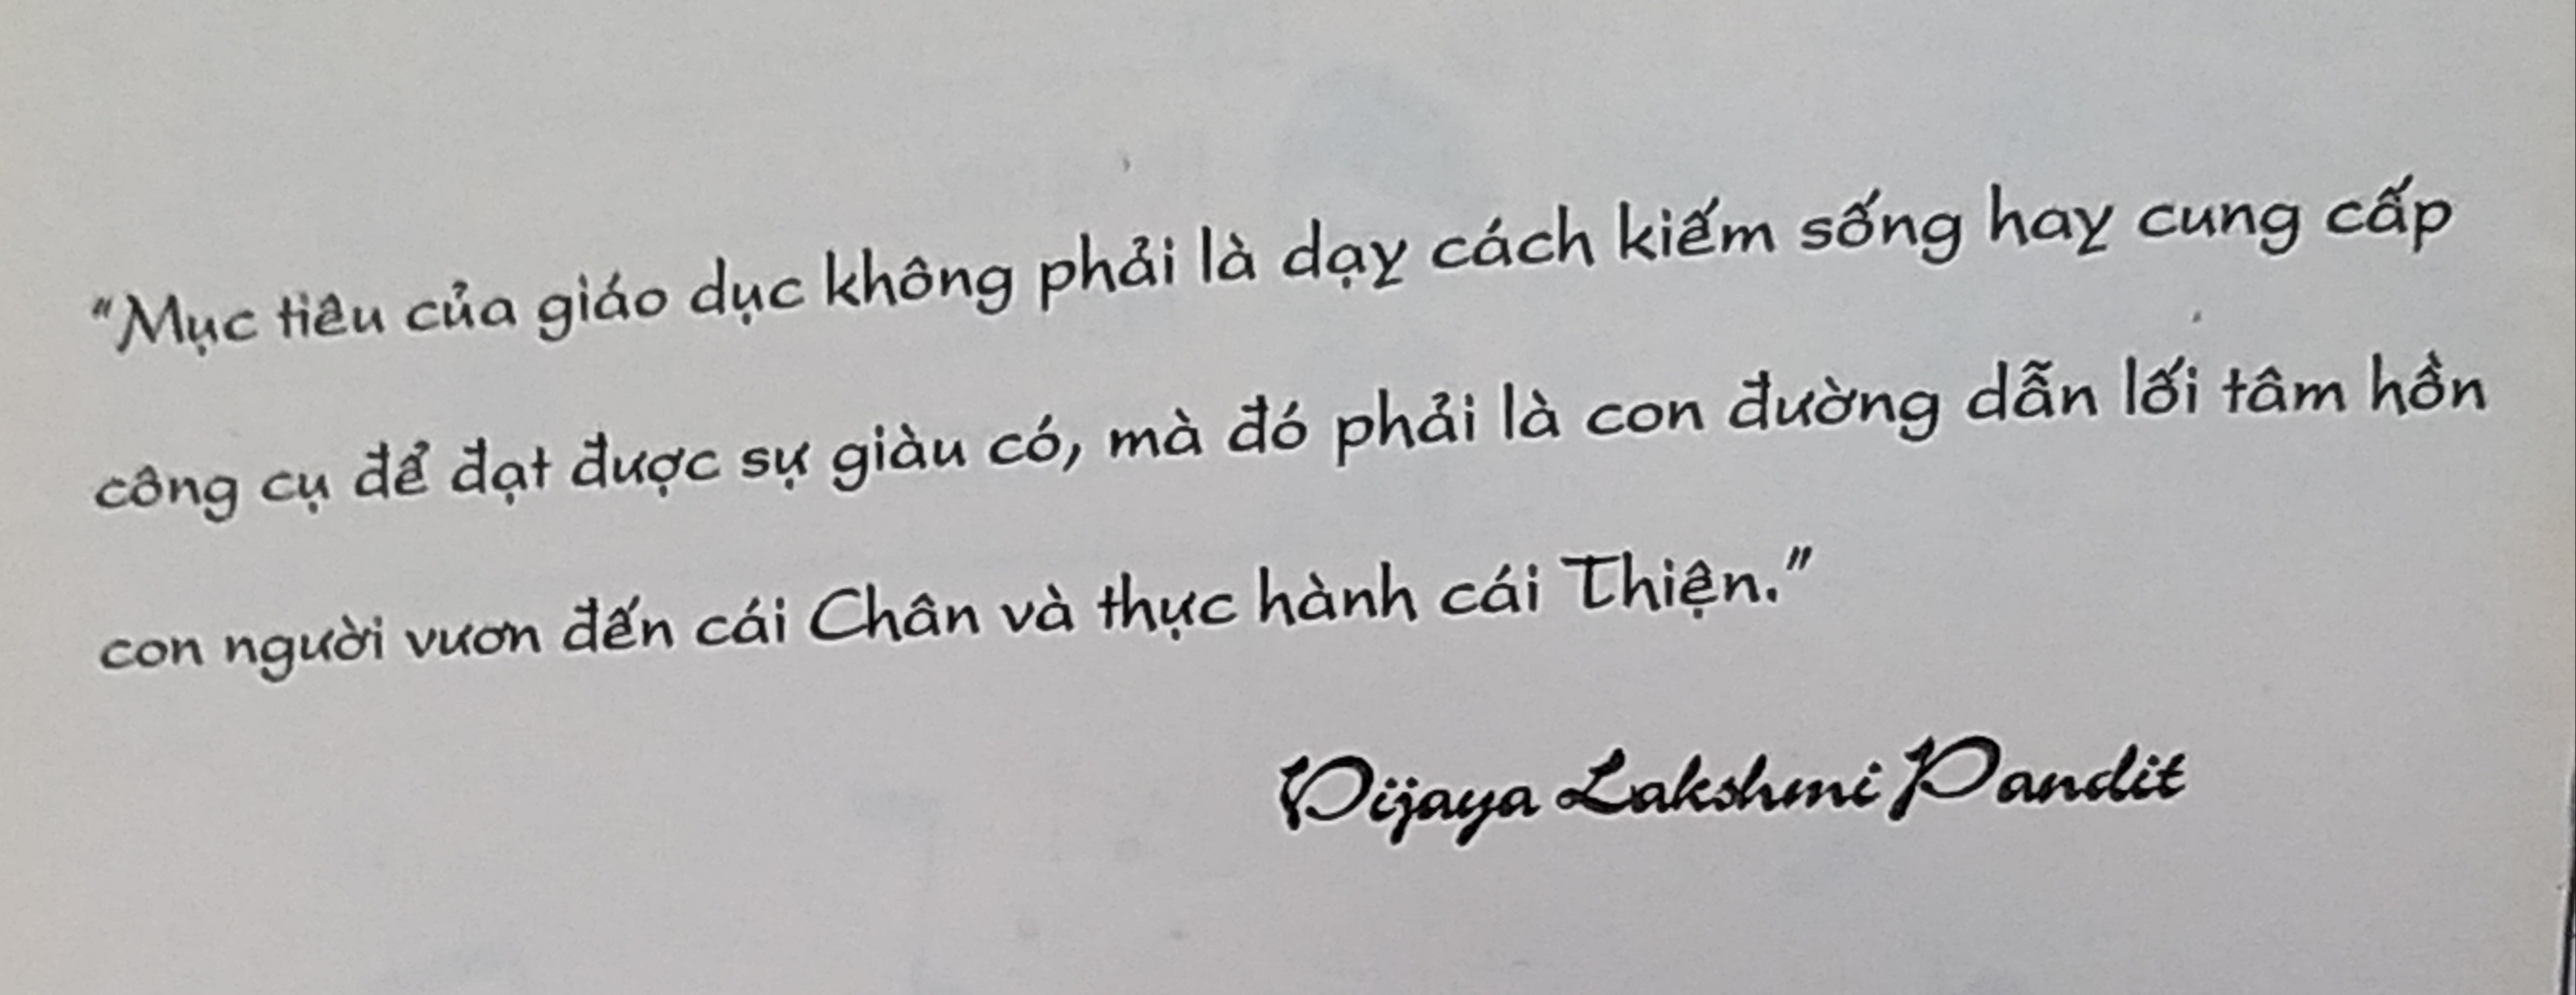 "Mục tiêu của giáo dục không phải là dạy cách kiếm sống hay cung cấp
công cụ để đạt được sự giàu có, mà đó phải là con đường dẫn lối tâm hồn
con người vươn đến cái Chân và thực hành cái Thiện."
Vijaya Lakshmi Pandit